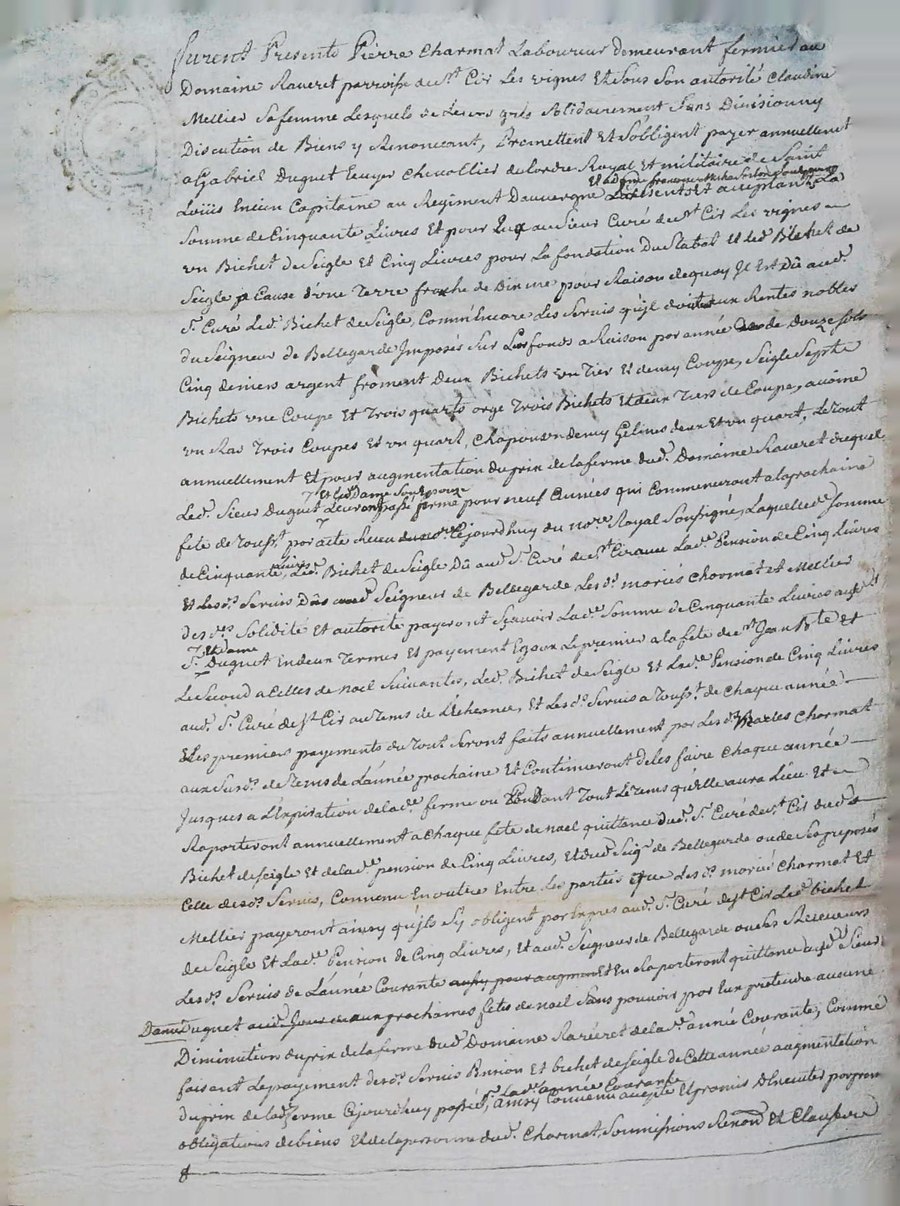 Furent Presents Pierre Charmat Laboureur demeurant fermier au
Domaine Raveret parroisse de St Cir Les vignes Et Sous Son autorité Claudine
Mellier Sa femme Lesquels de Leurs grés Solidairement Sans Division ny
Discution de Biens y Renoncant, Promettent Et S'obligent payer annuellemt
a Gabriel Duguet Ecuyer Chevallier de Lordre Royal Et militaire de Saint
Loüis Encien Capitaine au Regiment Dauvergne Et a Dame
presents Et acceptants La
Somme de Cinquante Livres Et pour Eux au Sieur Curé de St Cir Les vignes
un Bichet de Seigle Et Cinq Livres pour La fondation Du Et Led. Bichet de
Seigle a Cause d'une Terre pour Raison de quoy Il Est Dû aud.
Sr. Curé Led. Bichet de Seigle, Comm'Encore Les Servis qu'il doit aux Rentes nobles
du Seigneur de Bellegarde Imposés Sur Les fonds a Raison par année de douze sols
Cinq deniers argent froment deux Bichets un Tier Et demy Coupe, Seigle Sept
Bichets une Coupe Et Trois quarts orge Trois Bichets Et deux Tiers de Coupe, avoine
un Ras Trois Coupes Et un quart, Chapons un demy Gelines deux Et un quart, Le Tout
annuellement Et pour augmentation du prix de la ferme dud. Domaine Raveret duquel
Et lad. Dame Son Epouze
Led. Sieur Duguet Leur ont passé ferme pour neuf années qui Commenceront a la prochaine
fete de Touss.t par acte Recu Cejourdhuy du nore Royal Soussigné, Laquelle de Somme
de Cinquante Livres, Led. Bichet de Seigle Dû aud. Sr. Curé de St Cir avec Lad. Pension de Cinq Livres
Et Lesds. Servis Dûs aud. Seigneur de Bellegarde Lesds. mariés Charmat et Mellier
desds. Solidité Et autorité payeront Sçavoir Lade. Somme de Cinquante Livres aud.
Et Dame
Sr. Duguet En deux Termes Et payement Egaux Le premier a la fete de St Jean Bte Et
Le Second a Celles de noel Suivantes, Led. Bichet de Seigle Et Lade. Pension de Cinq Livres
aud. Sr. Curé de St Cir au Tems de L'Echeance, Et Lesds. Servis a Touss.t de Chaque année
Et Les premiers payements du Tout Seront faits annuellement par Lesds. Mariés Charmat
aux Susds. de Tems de Lannée prochaine Et Continueront de les faire Chaque année
Jusques a L'Expiration de lade. ferme ou Pendant Tout Le Tems qu'elle aura Lieu Et
Raporteront annuellement a Chaque fete de noel quittance dud. Sr. Curé de St Cir dud.
Bichet de Seigle Et de lade. pension de Cinq Livres, Et dud. Seigr. de Bellegarde ou de Ses preposés
Celle desds. Servis, Convenu En outre Entre Les parties que Lesds. mariés Charmat Et
Mellier payeront ainsy qu'ils S'y obligent par Exprés aud. Sr. Curé de St Cir Led. bichet
de Seigle Et Lade. Pension de Cinq Livres, Et aud. Seigneur de Bellegarde ou Ses Receveurs
Lesds. Servis de Lannée Courante Et En Raporteront quittance aud. Sieur
Dame
Duguet aux prochaines fetes de noel Sans pouvoir par Eux pretendre aucune
Diminution du prix de la ferme dud. Domaine Raveret de lade. année Courante, Comme
faisant Le payement desds. Servis Pension Et bichet de Seigle de Cette année augmentation
pr. Lade. année Courante
du prix de lade. ferme Cejourdhuy passée, ainsy Convenu accepté Et promis
obligations de biens Et de la personne dud. Charmat, Soumissions Renon. Et Clauses